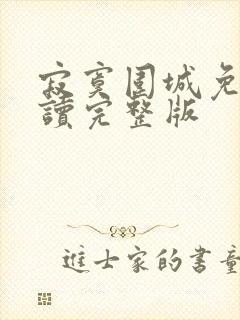 寂寞围城免
讀完整版
進士家的書童